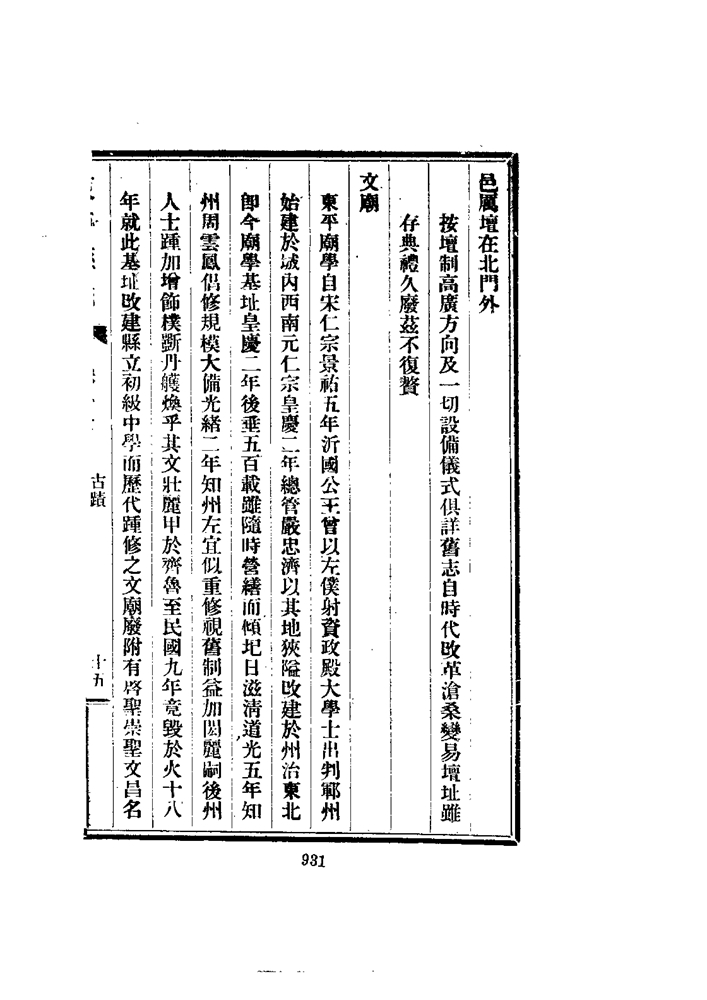 邑厲壇在北門外
按壇制高廣方向及一切設備儀式俱詳舊志自時代改革滄桑變易壇址雖
存典禮久廢茲不復贅
文廟
東平廟學自宋仁宗景祐五年沂國公王曾以左僕射資政殿大學士出判鄆州
始建於城內西南元仁宗皇慶二年總管嚴忠濟以其地狹隘改建於州治東北
卽今廟學基址皇慶二年後垂五百載雖隨時營繕而傾圮日滋淸道光五年知
州周雲鳳倡修規模大備光緒二年知州左宜似重修視舊制益加閎麗嗣後州
人士踵加增飾樸斵丹雘煥乎其文壯麗甲於齊魯至民國九年竟毀於火十八
年就此基址改建縣立初級中學而歷代踵修之文廟廢附有啓聖崇聖文昌名
古蹟
十五
931